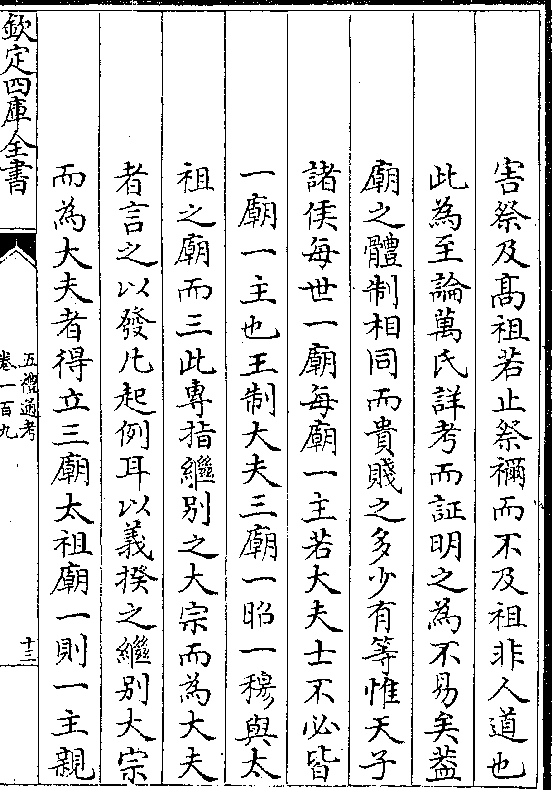 害祭及髙祖若止祭禰而不及祖非人道也
此為至論萬氏詳考而証明之為不易矣葢
廟之體制相同而貴賤之多少有等惟天子
諸侯每世一廟每廟一主若大夫士不必皆
一廟一主也王制大夫三廟一昭一穆與太
祖之廟而三此專指繼别之大宗而為大夫
者言之以發凡起例耳以義揆之繼别大宗
而為大夫者得立三廟太祖廟一則一主親
欽定四庫全書
五禮通考
卷一百九
十三